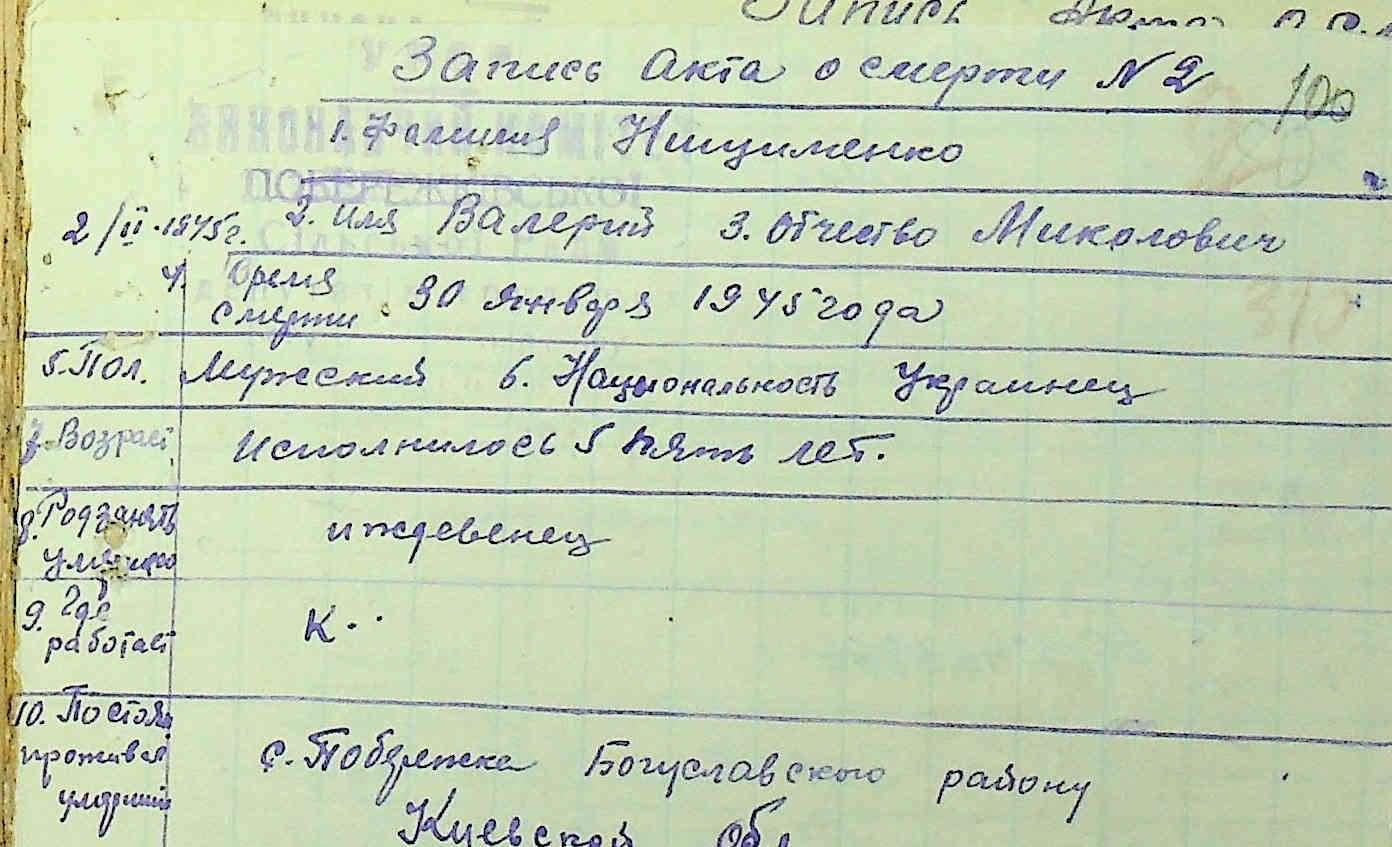 Запись
Запись Акта о смерти N 2
100
1. Фамилия Нищименко
2/II-1945г. 2. Имя Валерий 3. Отчество Миколович
4. Время смерти 30 января 1945 года
5. Пол. Мужский 6. Национальность Украинец
7. Возраст Исполнилось 5 пять лет.
8. Род занять
умершего
иждевенец
9. Где
работает
К..
10. Постоян
проживал
умерший
с. Побережка Богуславского району
Киевской Обл